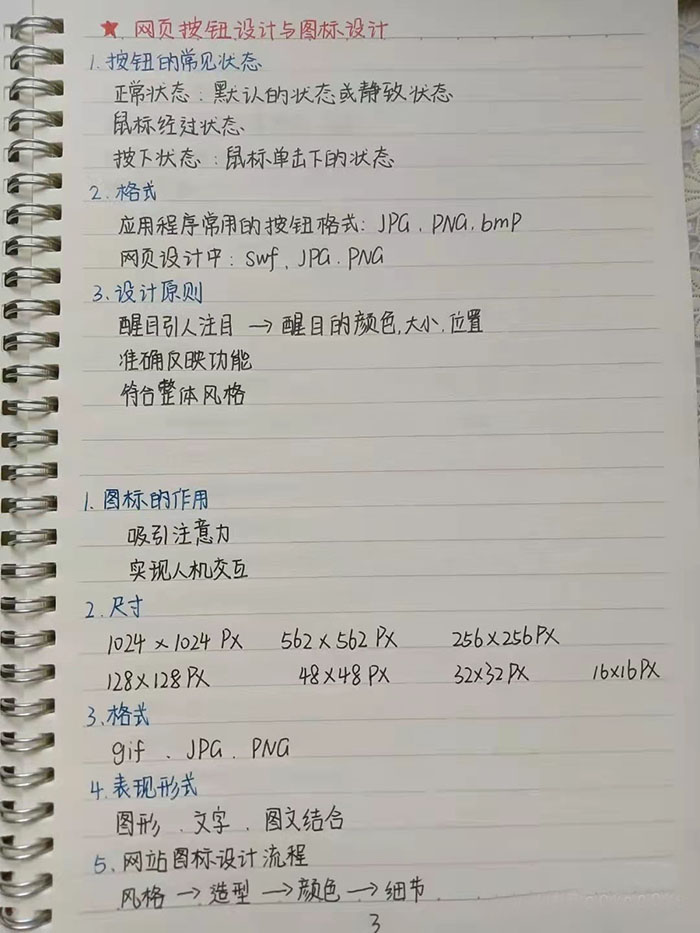 ★ 网页按钮设计与图标设计
1.按钮的常见状态
正常状态:默认的状态或静致状态
鼠标经过状态
按下状态:鼠标单击下的状态
2.格式
应用程序常用的按钮格式:JPG、PNG、bmp
网页设计中:swf、JPG、PNG
3.设计原则
醒目引人注目→醒目的颜色,大小、位置
准确反映功能
符合整体风格
1.图标的作用
吸引注意力
实现人机交互
2.尺寸
1024×1024 PX 562×562 PX 256×256PX
128×128PX 48×48PX 32×32PX 16×16PX
3.格式
gif、JPG、PNG
4.表现形式
图形、文字、图文结合
5.网站图标设计流程
风格→造型→颜色→细节
3